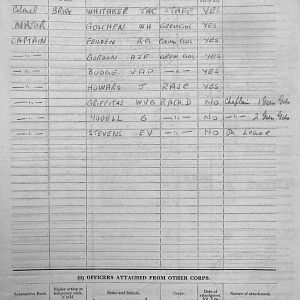 Colonel Brig. WHITAKER JAC STAFF YES
MAJOR GOSCHEN WH GREN GDS YES
CAPTAIN FEILDEN RG GREN GDS YES
—"— GORDON AIF GREN GDS YES
—"— BUDGE VRP —"— YES
—"— HOWARD J RASC YES
—"— GRIFFITHS WVG RACHD NO Chaplain 1 Gren Gds
—"— YOUELL G —"— NO —"— 2 Gren Gds
—"— STEVENS EV —"— NO On Leave
(ii) OFFICERS ATTACHED FROM OTHER CORPS.
Substantive Rank. Higher acting or temporary rank if held. Name and Initials. Corps. Date of attachment. Nature of attachment.